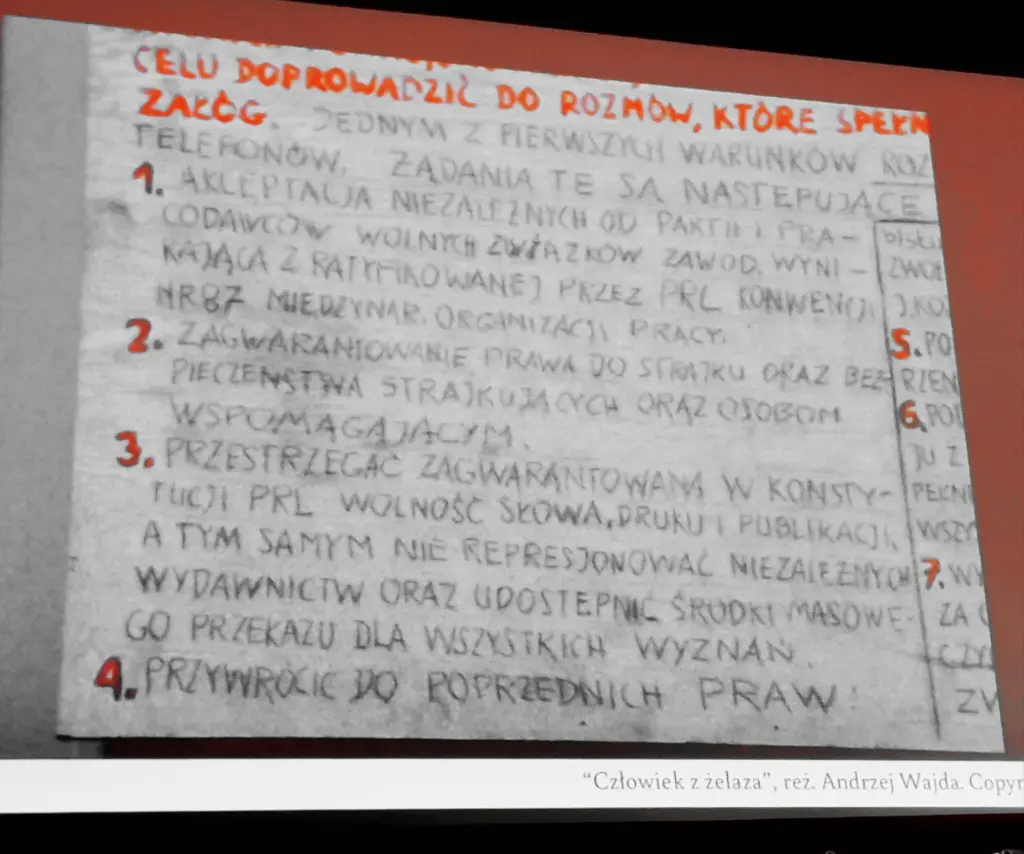 CELU DOPROWADZIĆ DO ROZMÓW, KTÓRE SPEŁN
ZAŁÓG. JEDNYM Z PIERWSZYCH WARUNKÓW ROZ
TELEFONÓW. ŻĄDANIA TE SĄ NASTĘPUJĄCE
1. AKCEPTACJA NIEZALEŻNYCH OD PARTII I PRA-
CODAWCÓW WOLNYCH ZWIĄZKÓW ZAWOD. WYNI-
KAJĄCA Z RATYFIKOWANEJ PRZEZ PRL KONWENCJI
NR 87 MIĘDZYNAR. ORGANIZACJI PRACY.
2. ZAGWARANTOWANIE PRAWA DO STRAJKU ORAZ BEZ-
PIECZEŃSTWA STRAJKUJĄCYCH ORAZ OSOBOM
WSPOMAGAJĄCYM.
3. PRZESTRZEGAĆ ZAGWARANTOWANĄ W KONSTY-
TUCJI PRL WOLNOŚĆ SŁOWA, DRUKU I PUBLIKACJI,
A TYM SAMYM NIE REPRESJONOWAĆ NIEZALEŻNYCH
WYDAWNICTW ORAZ UDOSTĘPNIĆ ŚRODKI MASOWE-
GO PRZEKAZU DLA WSZYSTKICH WYZNAŃ.
4. PRZYWRÓCIĆ DO POPRZEDNICH PRAW:
ZWOL
5. PO
RZEN
6. POD
JU Z
PEŁN
WSZY
7. WY
ZA
CZY
ZW
"Człowiek z żelaza", reż. Andrzej Wajda. Copyr